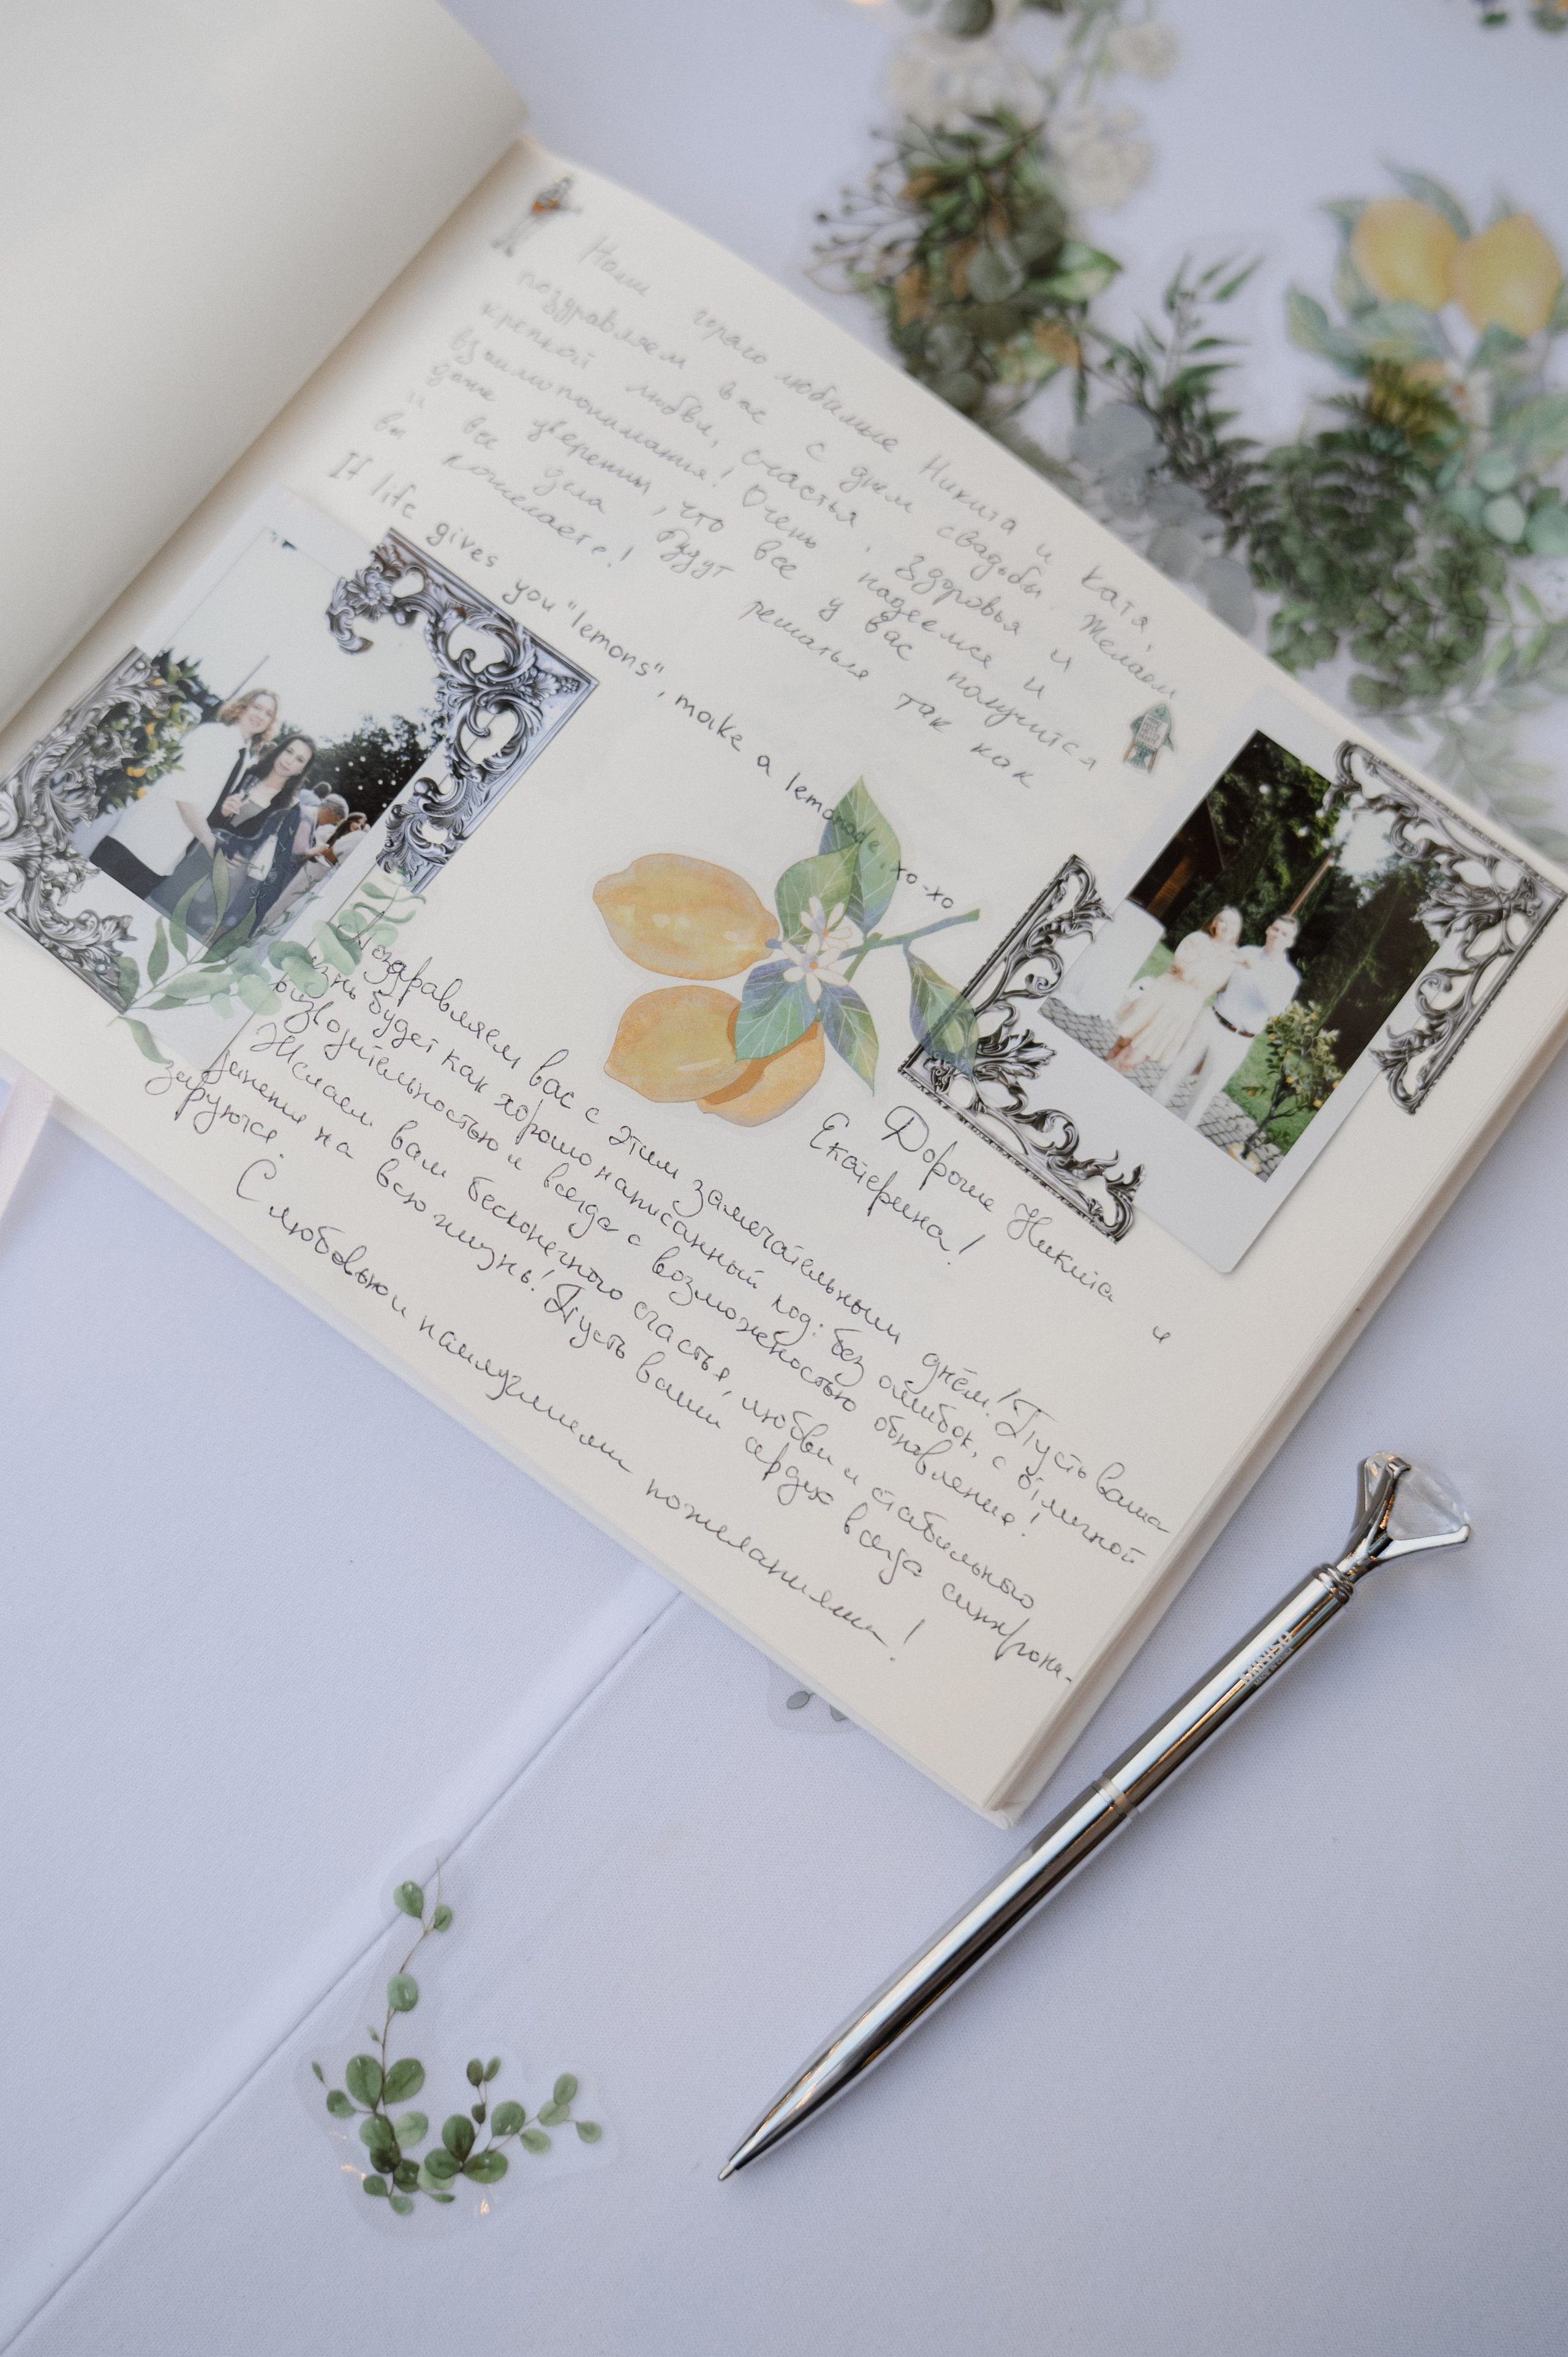 Наши горячо любимые Никита и Катя,
поздравляем вас с днем свадьбы. Желаем
крепкой любви, счастья, здоровья и
взаимопонимания! Очень надеемся и
даже уверены, что все у вас получится
и все дела будут решаться так как
вы пожелаете!
If life gives you "lemons", make a lemonade, xo-xo
Дорогие Никита и
Екатерина!
Поздравляем вас с этим замечательным днём! Пусть ваша
изнь будет как хорошо написанный код: без ошибок, с отличной
оизводительностью и всегда с возможностью обновления!
Желаем вам бесконечного счастья, любви и стабильного
динения на всю жизнь! Пусть ваши сердца всегда синхрони-
зируются.
С любовью и наилучшими пожеланиями!